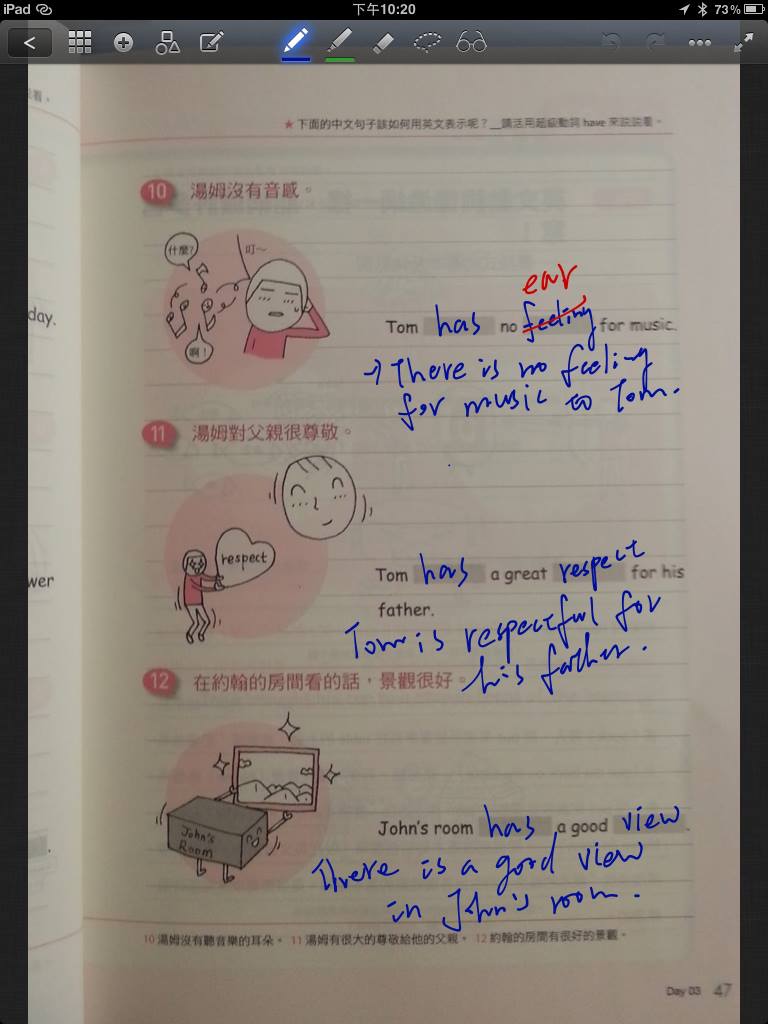 iPad 下午10:20 73%
看。
★下面的中文句子該如何用英文表示呢？__請活用超級動詞 have 來說說看。
10 湯姆沒有音感。
什麼?
叮～
啊！
day.
ear
Tom has no feeling for music.
→ There is no feeling
for music to Tom.
11 湯姆對父親很尊敬。
respect
Tom has a great respect for his
father.
wer
Tom is respectful for
his father.
12 在約翰的房間看的話，景觀很好。
John's
Room
John's room has a good view.
There is a good view
in John's room.
10 湯姆沒有聽音樂的耳朵。 11 湯姆有很大的尊敬給他的父親。 12 約翰的房間有很好的景觀。
Day 03 47